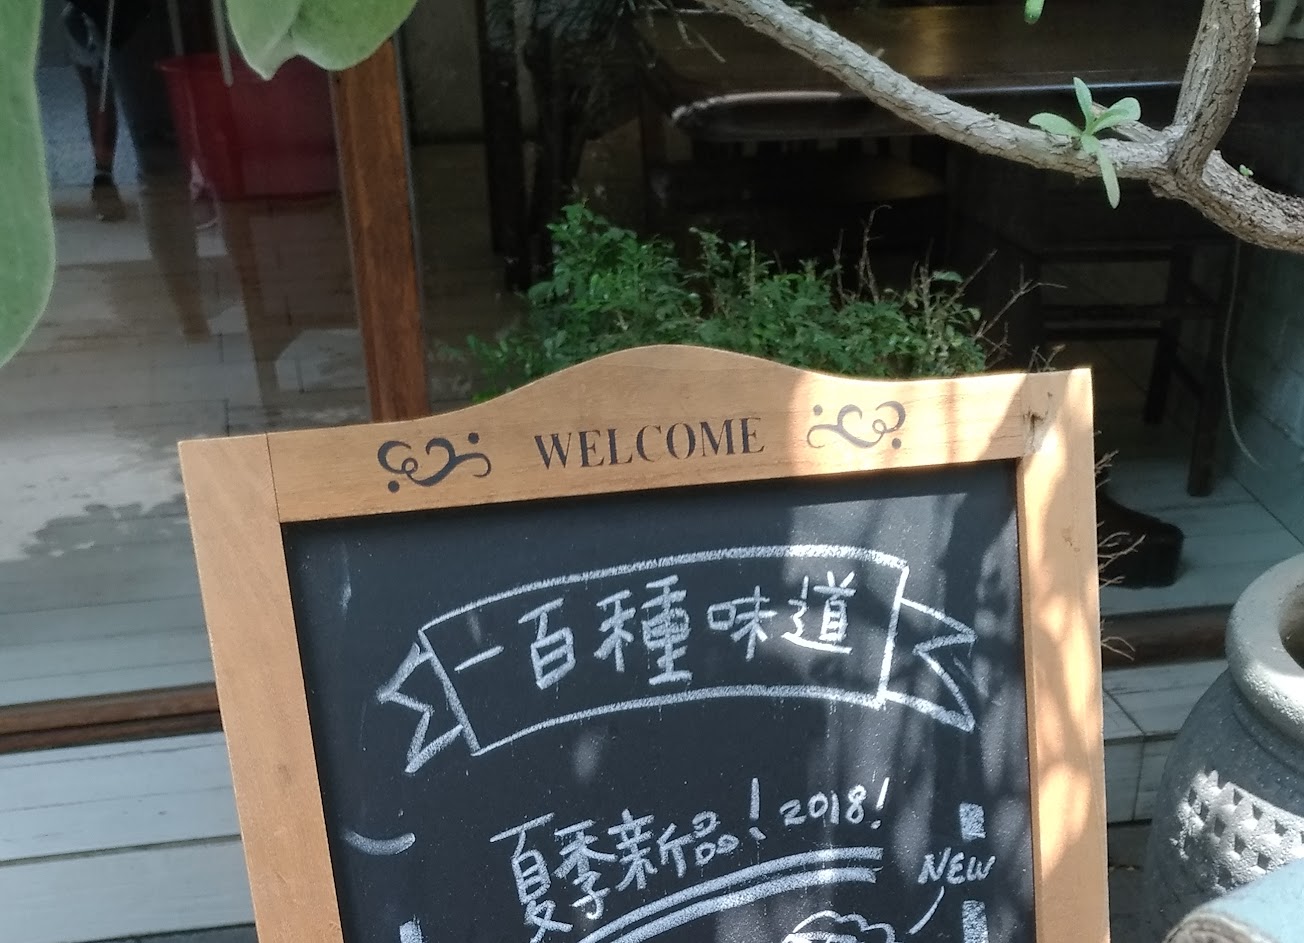 WELCOME
一百種味道
夏季新品！2018！
NEW